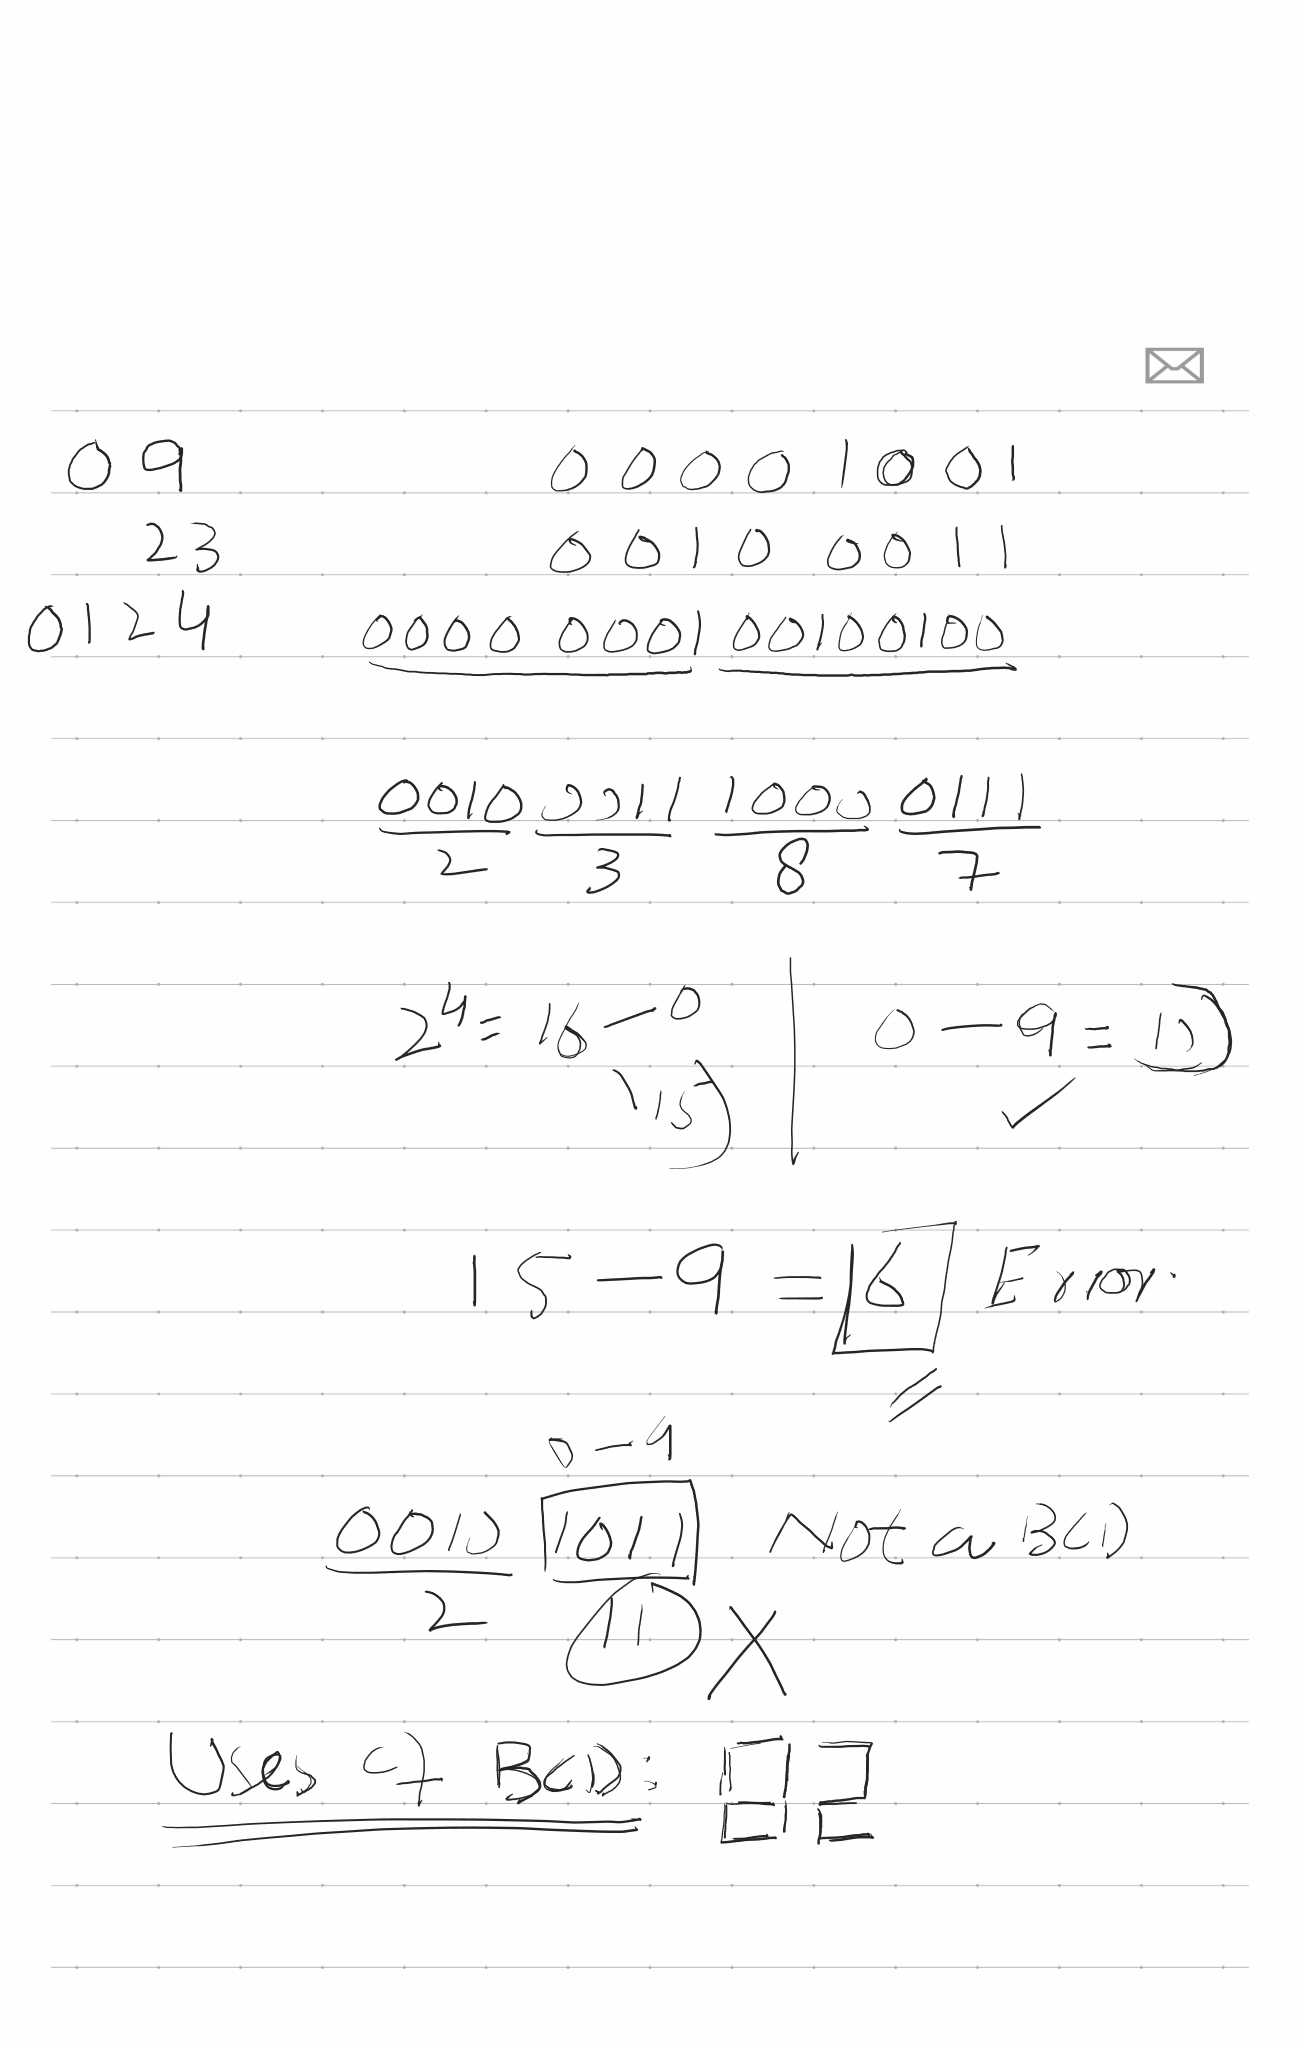 09 0000 1001
23 0010 0011
0124 0000 0001 00100100
0010 0011 1000 0111
2 3 8 7
2⁴ = 16 — 0 0 — 9 = 10
15 ✓
15 — 9 = 16 Error.
0 — 9
0010 1011 Not a BCD
2 11 X
Uses of BCD: 82